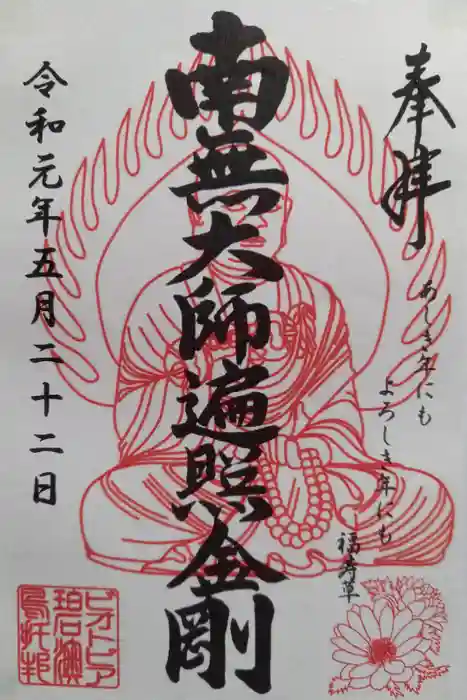 奉拝
あしき年にも
よろしき年にも
福寿草
南無大師遍照金剛
令和元年五月二十二日
烏托邦